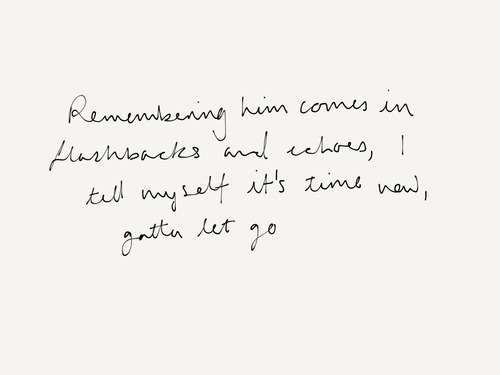 Remembering him comes in
flashbacks and echoes, I
tell myself it's time now,
gotta let go